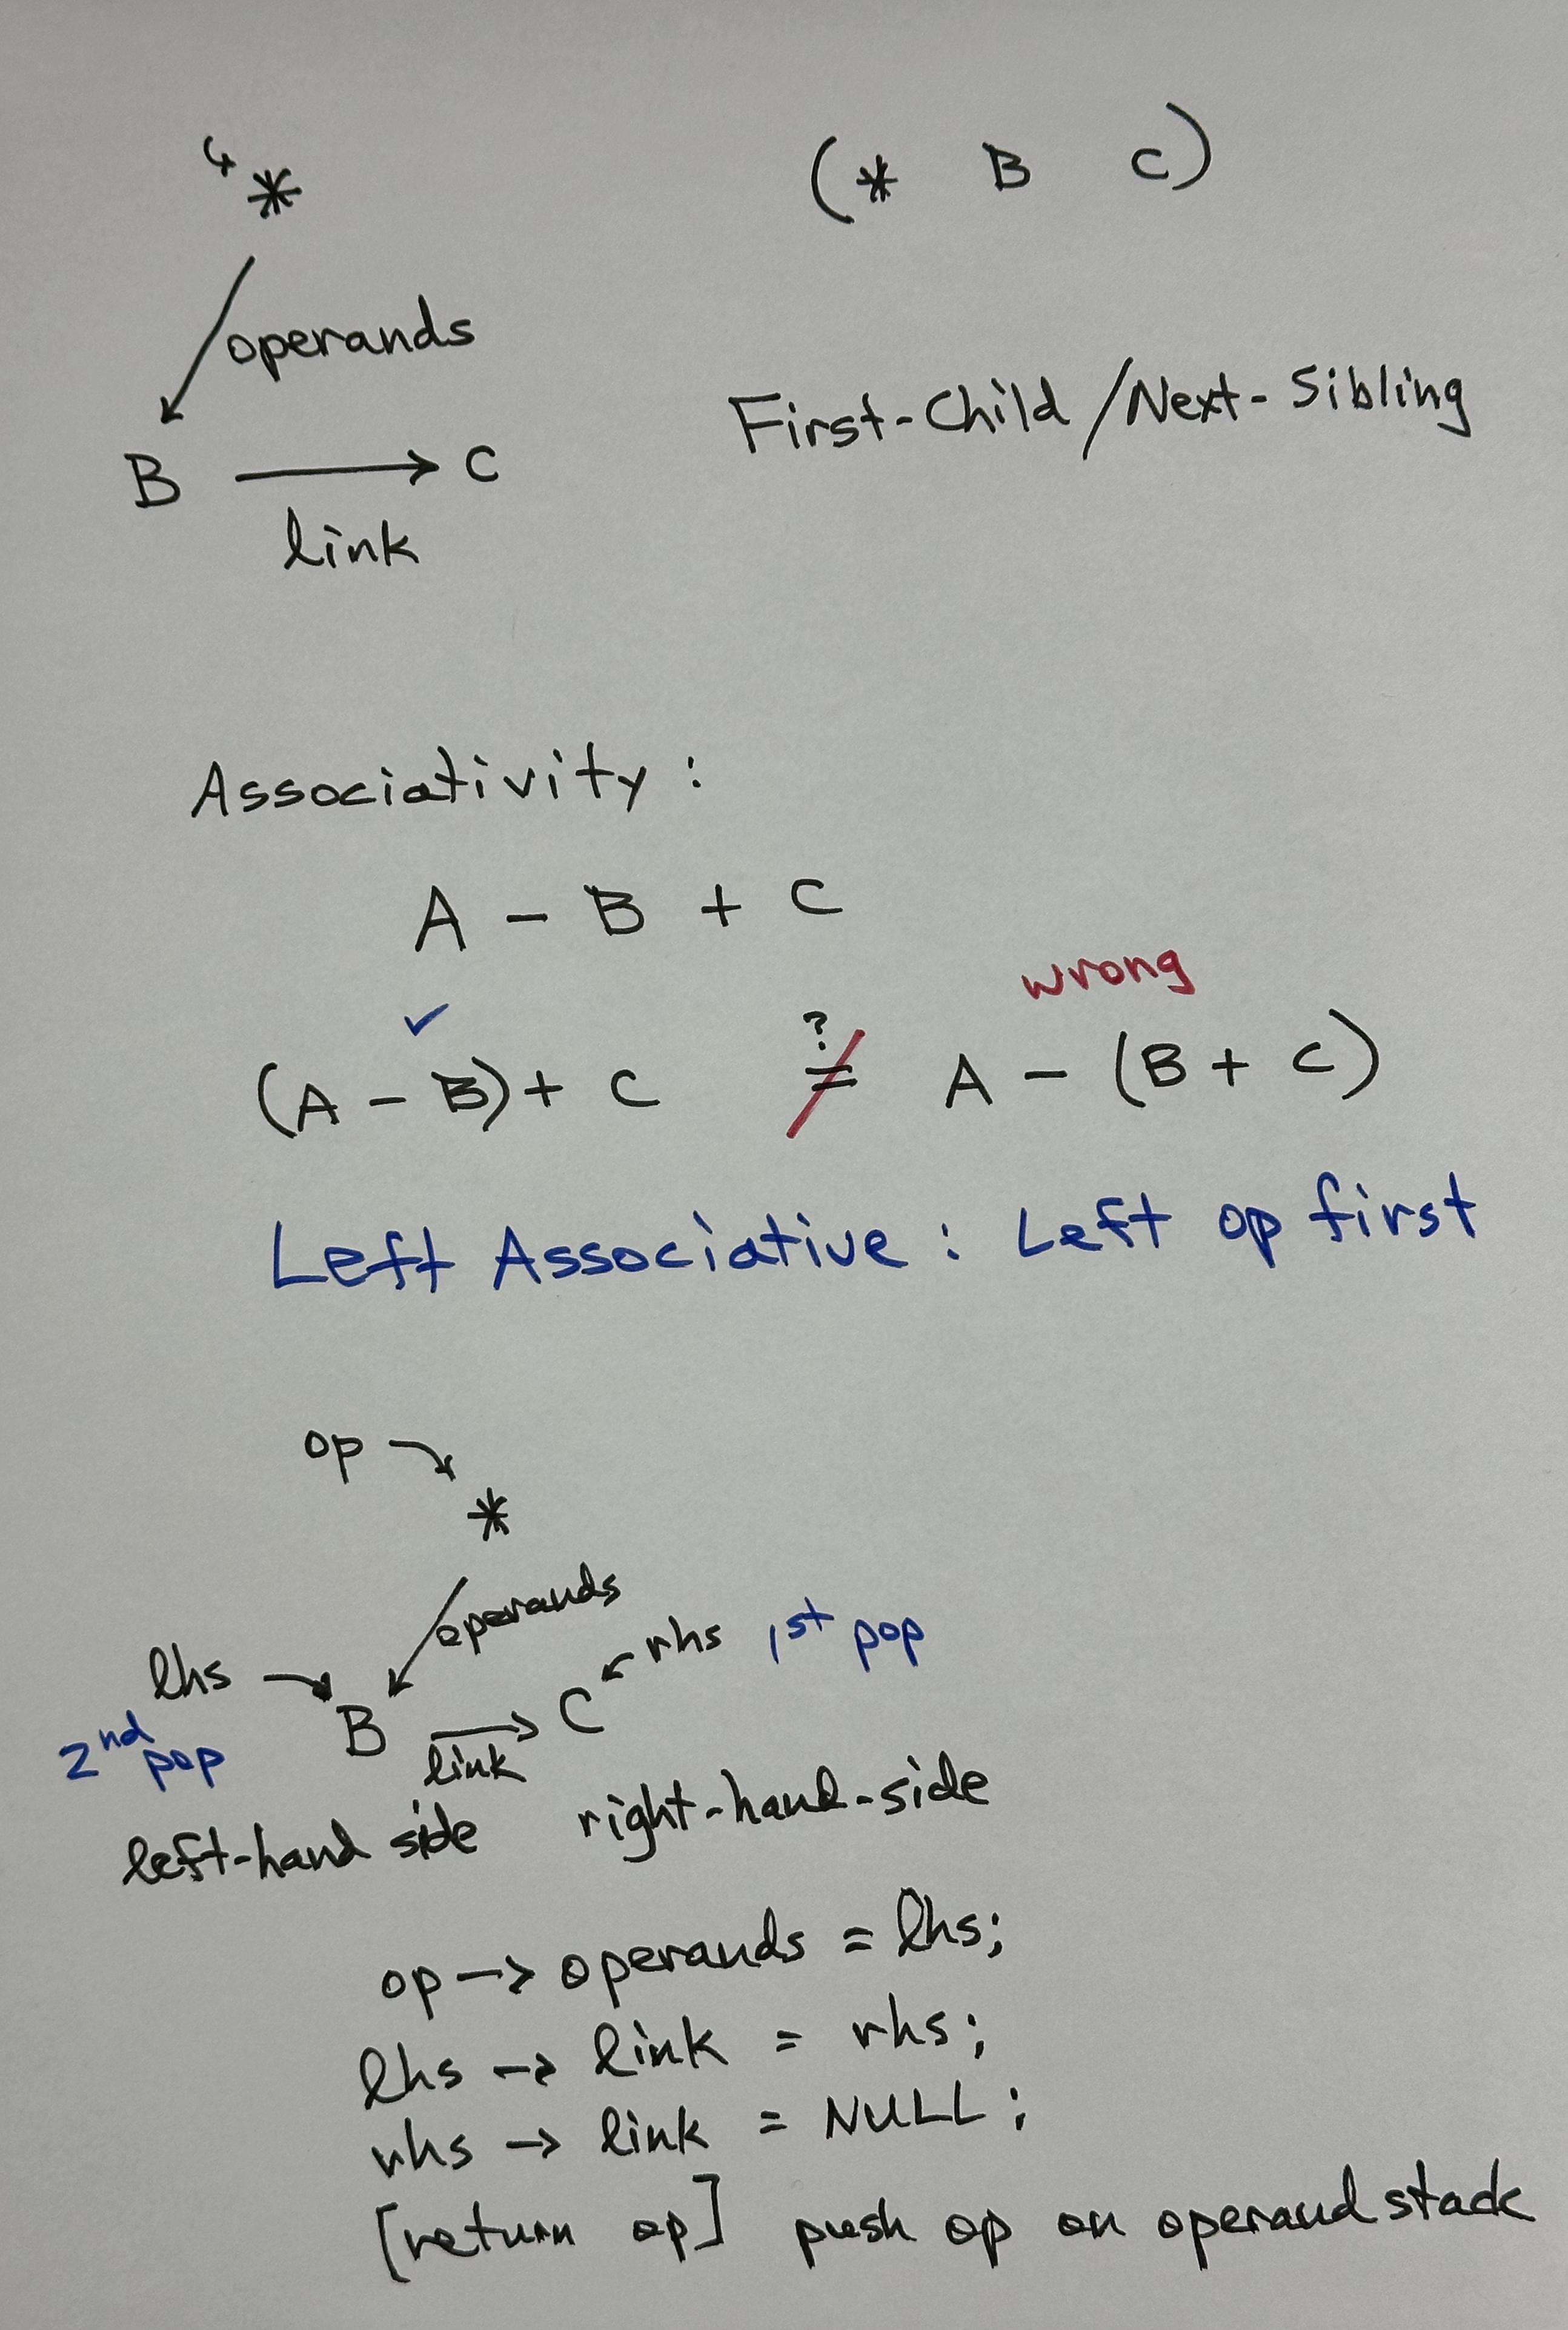 * (* B C)
operands
First-Child/Next-Sibling
B → C
link
Associativity:
A - B + C
wrong
✓ ?
(A - B) + C ≠ A - (B + C)
Left Associative: Left op first
op
*
operands
lhs rhs 1st pop
2nd pop B → C
link
left-hand side right-hand-side
op -> operands = lhs;
lhs -> link = rhs;
rhs -> link = NULL;
[return op] push op on operand stack